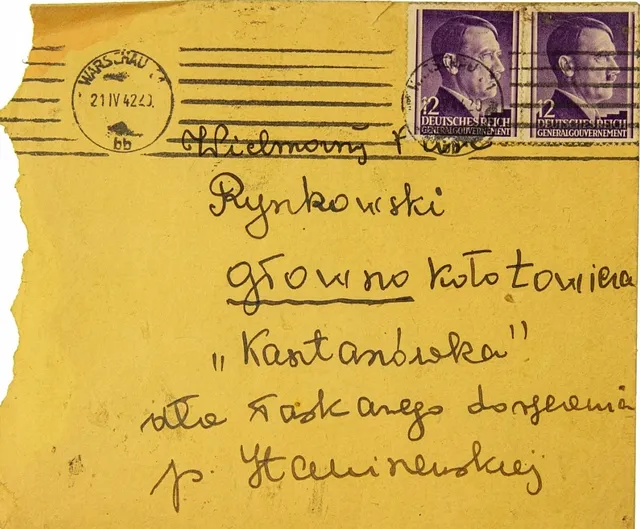 WARSCHAU
21 IV 42 20
bb
12 DEUTSCHES REICH
GENERALGOUVERNEMENT
12 DEUTSCHES REICH
GENERALGOUVERNEMENT
Wielmożny
Rynkowski
Głowno koło Łowicza
„Kasztanówka”
dla łaskawego doręczenia
p. Staniszewskiej